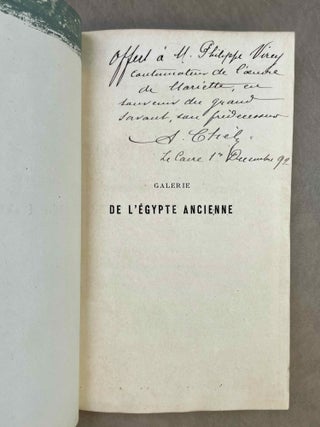 Offert à M. Philippe Virey
continuateur de l'œuvre
de Mariette, en
souvenir du grand
savant, son prédécesseur
Le Caire 1er Décembre 92
GALERIE
DE L'ÉGYPTE ANCIENNE